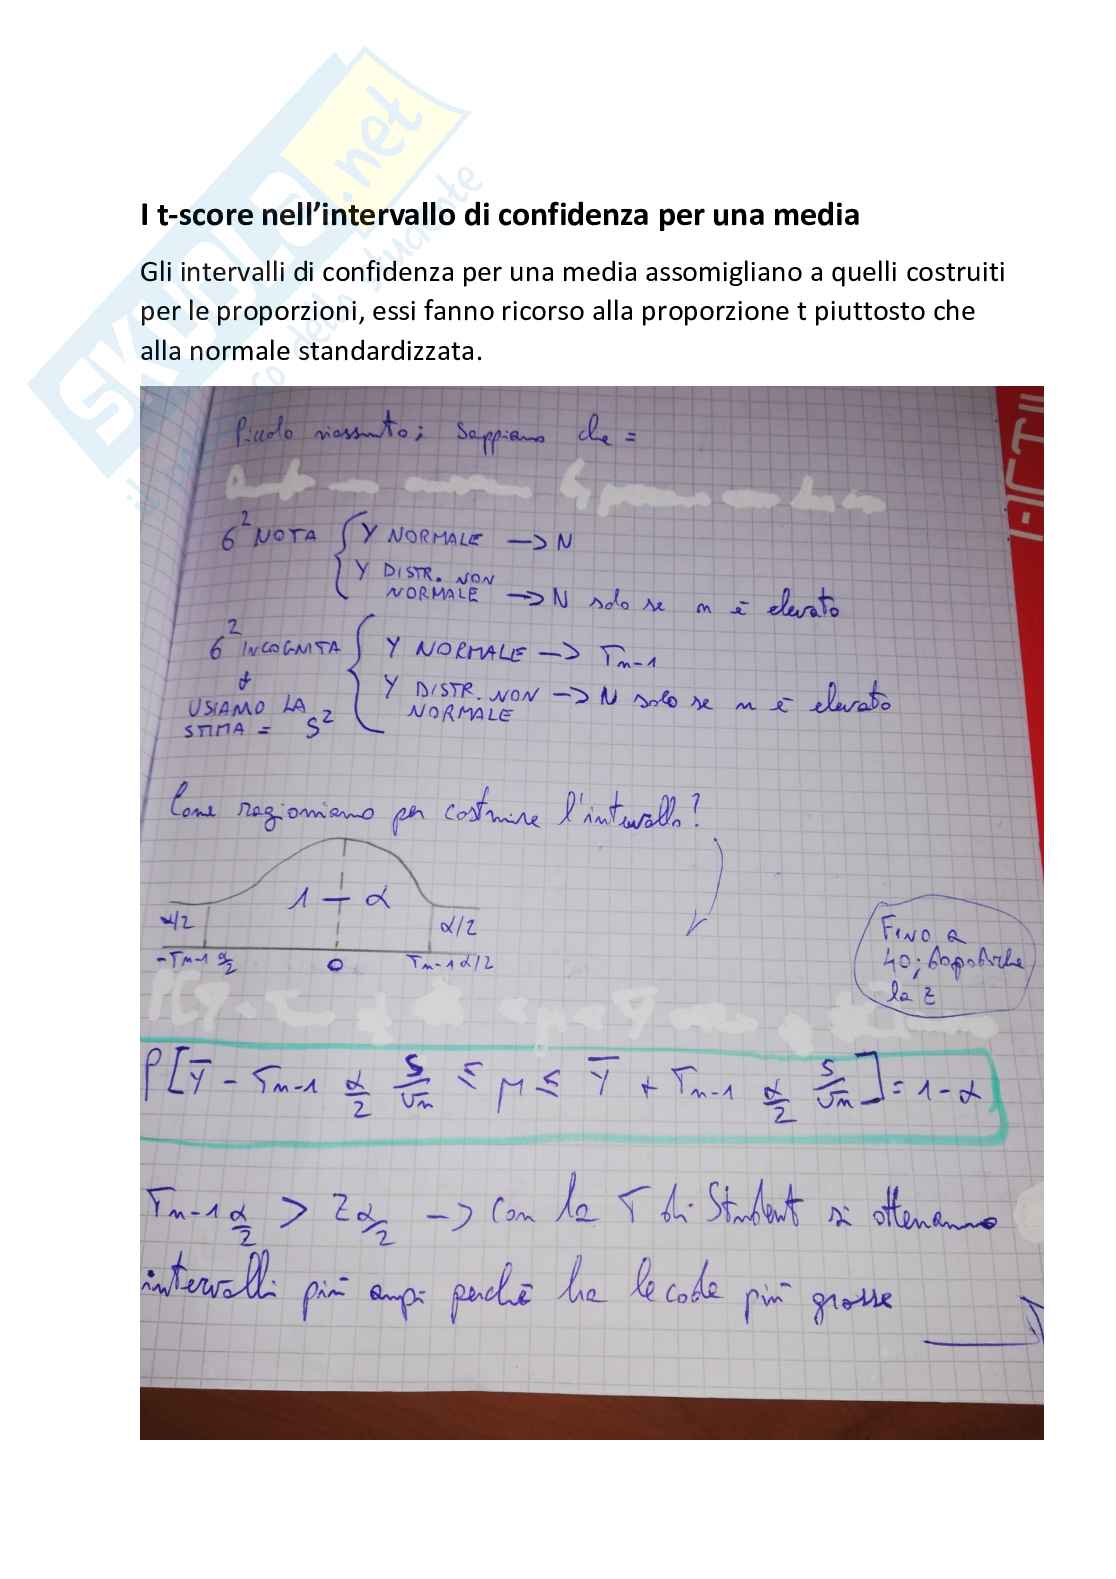 SKUOLA.net
I t-score nell’intervallo di confidenza per una media
Gli intervalli di confidenza per una media assomigliano a quelli costruiti
per le proporzioni, essi fanno ricorso alla proporzione t piuttosto che
alla normale standardizzata.
Piccolo riassunto; Sappiamo che =
6² NOTA { Y NORMALE —> N
Y DISTR. NON
NORMALE —> N solo se n è elevato
6² INCOGNITA { Y NORMALE —> Tn-1
USIAMO LA
STIMA = S²
Y DISTR. NON —> N solo se n è elevato
NORMALE
Come ragioniamo per costruire l'intervallo?
1 — α
α/2
α/2
-Tn-1 α/2
0
Tn-1 α/2
FINO a
40; dopodiche
la z
P[Y̅ - Tn-1 α/2 S/√n ≤ μ ≤ Y̅ + Tn-1 α/2 S/√n] = 1-α
Tn-1 α/2 > Zα/2 —> Con la T di Student si otterranno
intervalli più ampi perchè ha le code più grosse